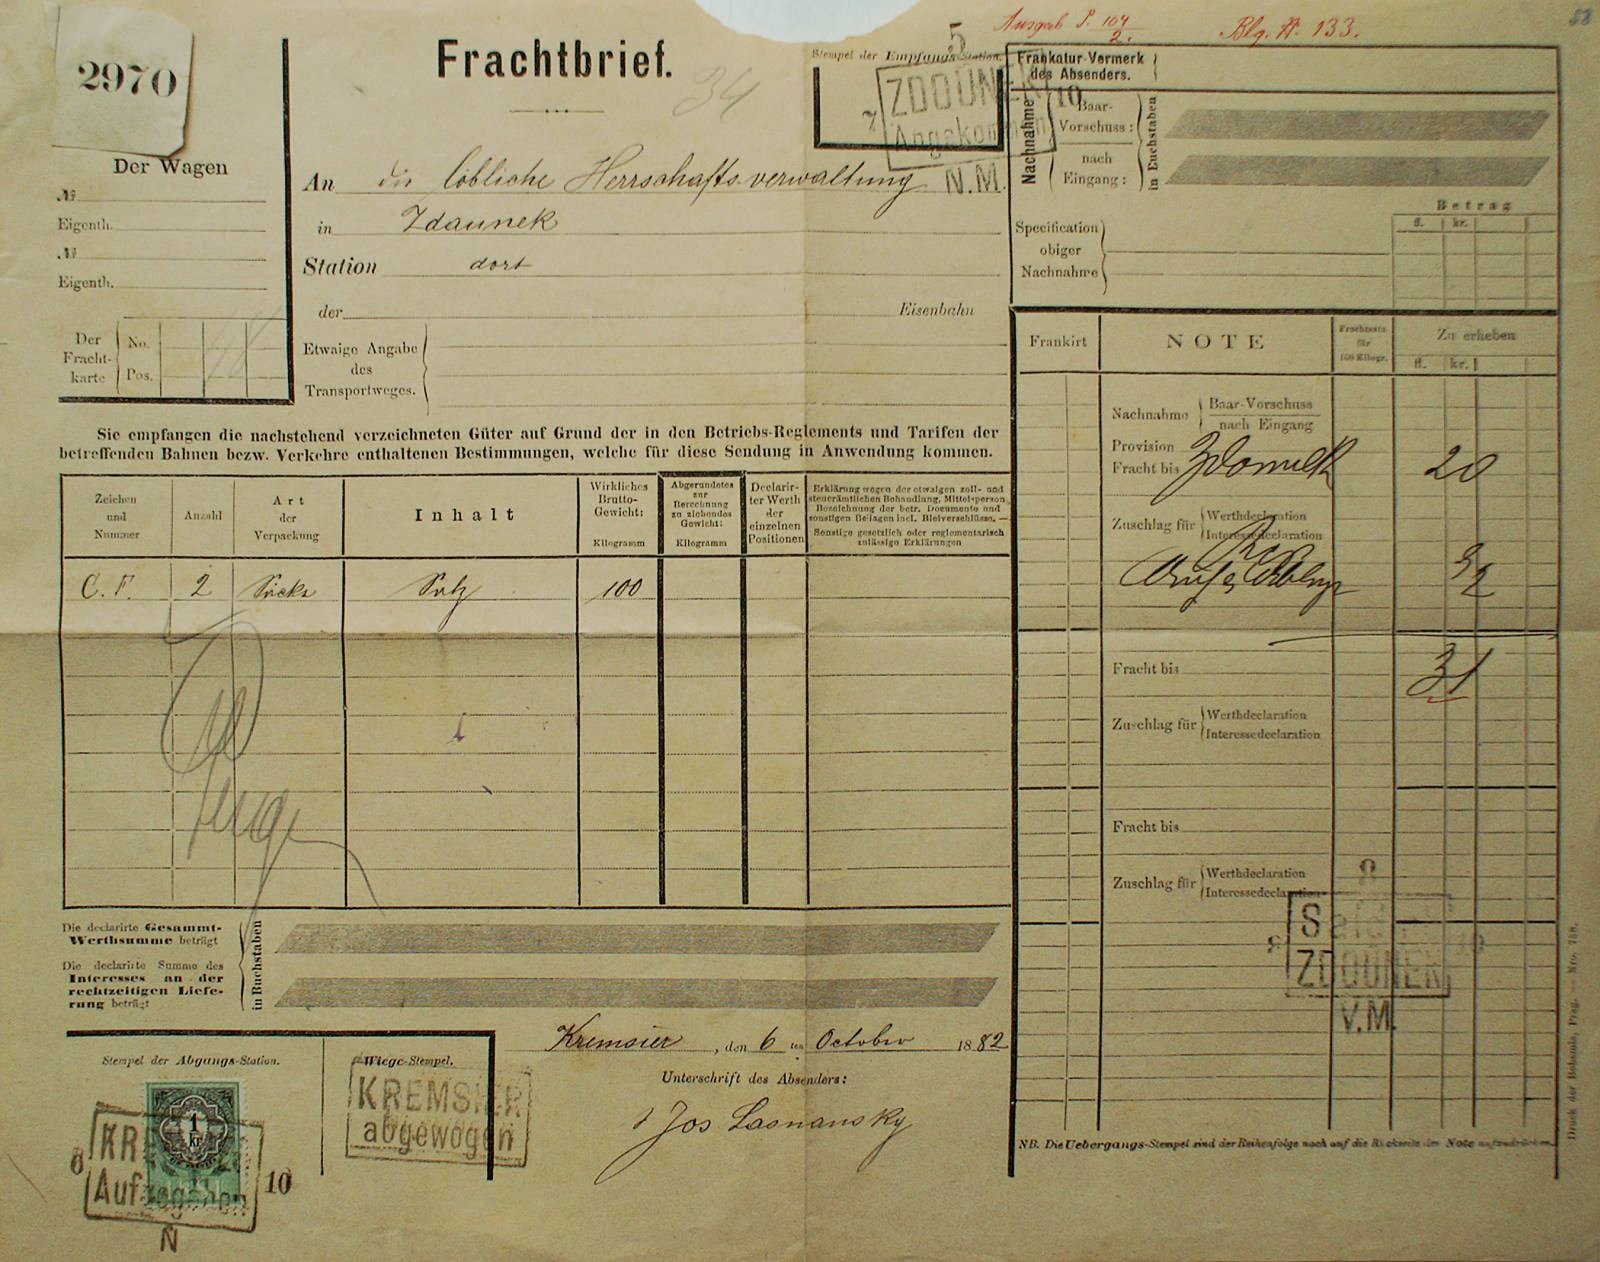 58
Ausgab P. 104/2.
Blg. № 133.
2970
Frachtbrief.
34
5
Stempel der Empfangs-Station.
ZDOUNEK
Angekommen
7
10
N.M.
Der Wagen
№
Eigenth.
№
Eigenth.
Der Fracht-karte
No.
Pos.
An die löbliche Herrschafts-verwaltung
in Zdaunek
Station dort
der Eisenbahn
Etwaige Angabe
des
Transportweges.
Frankatur-Vermerk
des Absenders.
Nachnahme
Baar-
Vorschuss:
nach
Eingang:
in Buchstaben
Betrag
fl. kr.
Specification
obiger
Nachnahme
Sie empfangen die nachstehend verzeichneten Güter auf Grund der in den Betriebs-Reglements und Tarifen der
betreffenden Bahnen bezw. Verkehre enthaltenen Bestimmungen, welche für diese Sendung in Anwendung kommen.
Zeichen
und
Nummer
Anzahl
Art
der
Verpackung
Inhalt
Wirkliches
Brutto-
Gewicht:
Kilogramm
Abgerundetes
zur
Berechnung
zu ziehendes
Gewicht:
Kilogramm
Declarir-
ter Werth
der
einzelnen
Positionen
Erklärung wegen der etwaigen zoll- und
steuerämtlichen Behandlung, Mittelsperson
Bezeichnung der betr. Documente und
sonstigen Beilagen incl. Bleiverschlüsse. —
Sonstige gesetzlich oder reglementarisch
zulässige Erklärungen
C. F. 2 Säcke Salz 100
Frankirt
NOTE
Frachtsatz
für
100 Kilogr.
Zu erheben
fl. kr.
Nachnahme
Baar-Vorschuss
nach Eingang
Provision
Fracht bis 20
Zuschlag für
Werthdeclaration
Interessedeclaration
Fracht bis 31
Zuschlag für
Werthdeclaration
Interessedeclaration
Fracht bis
Zuschlag für
Werthdeclaration
Interessedeclaration
ZDOUNEK
V.M.
Die declarirte Gesammt-
Werthsumme beträgt
Die declarirte Summe des
Interesses an der
rechtzeitigen Liefe-
rung beträgt
in Buchstaben
Kremsier, den 6 ten October 1882
Unterschrift des Absenders:
Stempel der Abgangs-Station.
Wiege-Stempel.
KREMSIER
abgewogen
1
kr.
KREMSIER
Aufgegeben
8
10
N
NB. Die Uebergangs-Stempel sind der Reihenfolge nach auf die Rückseite der Note aufzudrücken.
Druck der Bohemia, Prag. — Nro. 718.